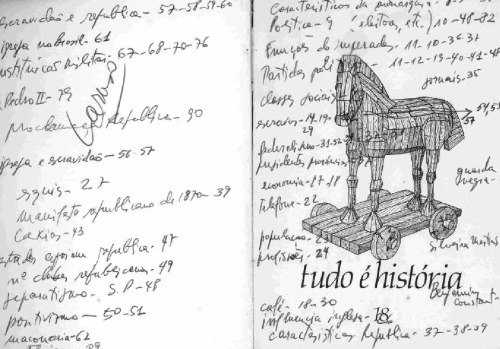 escravidão e república - 57-58-59-60
igreja no Brasil - 61
instituições militares - 67-68-70-76
Pedro II - 79
proclamação República - 90
igreja e escravidão - 56-57
- 27
manifesto republicano de 1870 - 39
Caxias - 43
república - 47
nº clubes republicanos - 49
separatismo - S.P - 48
positivismo - 50-51
maçonaria - 62
Características da monarquia -
Política - 9 (eleitor, etc.) 10-48-82
Funções do imperador - 11-10-36-37
Partidos - 11-12-13-40-41-
jornais - 35
classes sociais
escravos - 14-19-
29
federalismo - 33-52-
presidentes províncias -
economia - 17-18
guarda
telefone - 22
população - 23
profissões - 24
Silveira Martins
tudo é história
Benjamin
Constant -
café - 18-30
18
influência inglesa -
características República - 37-38-39